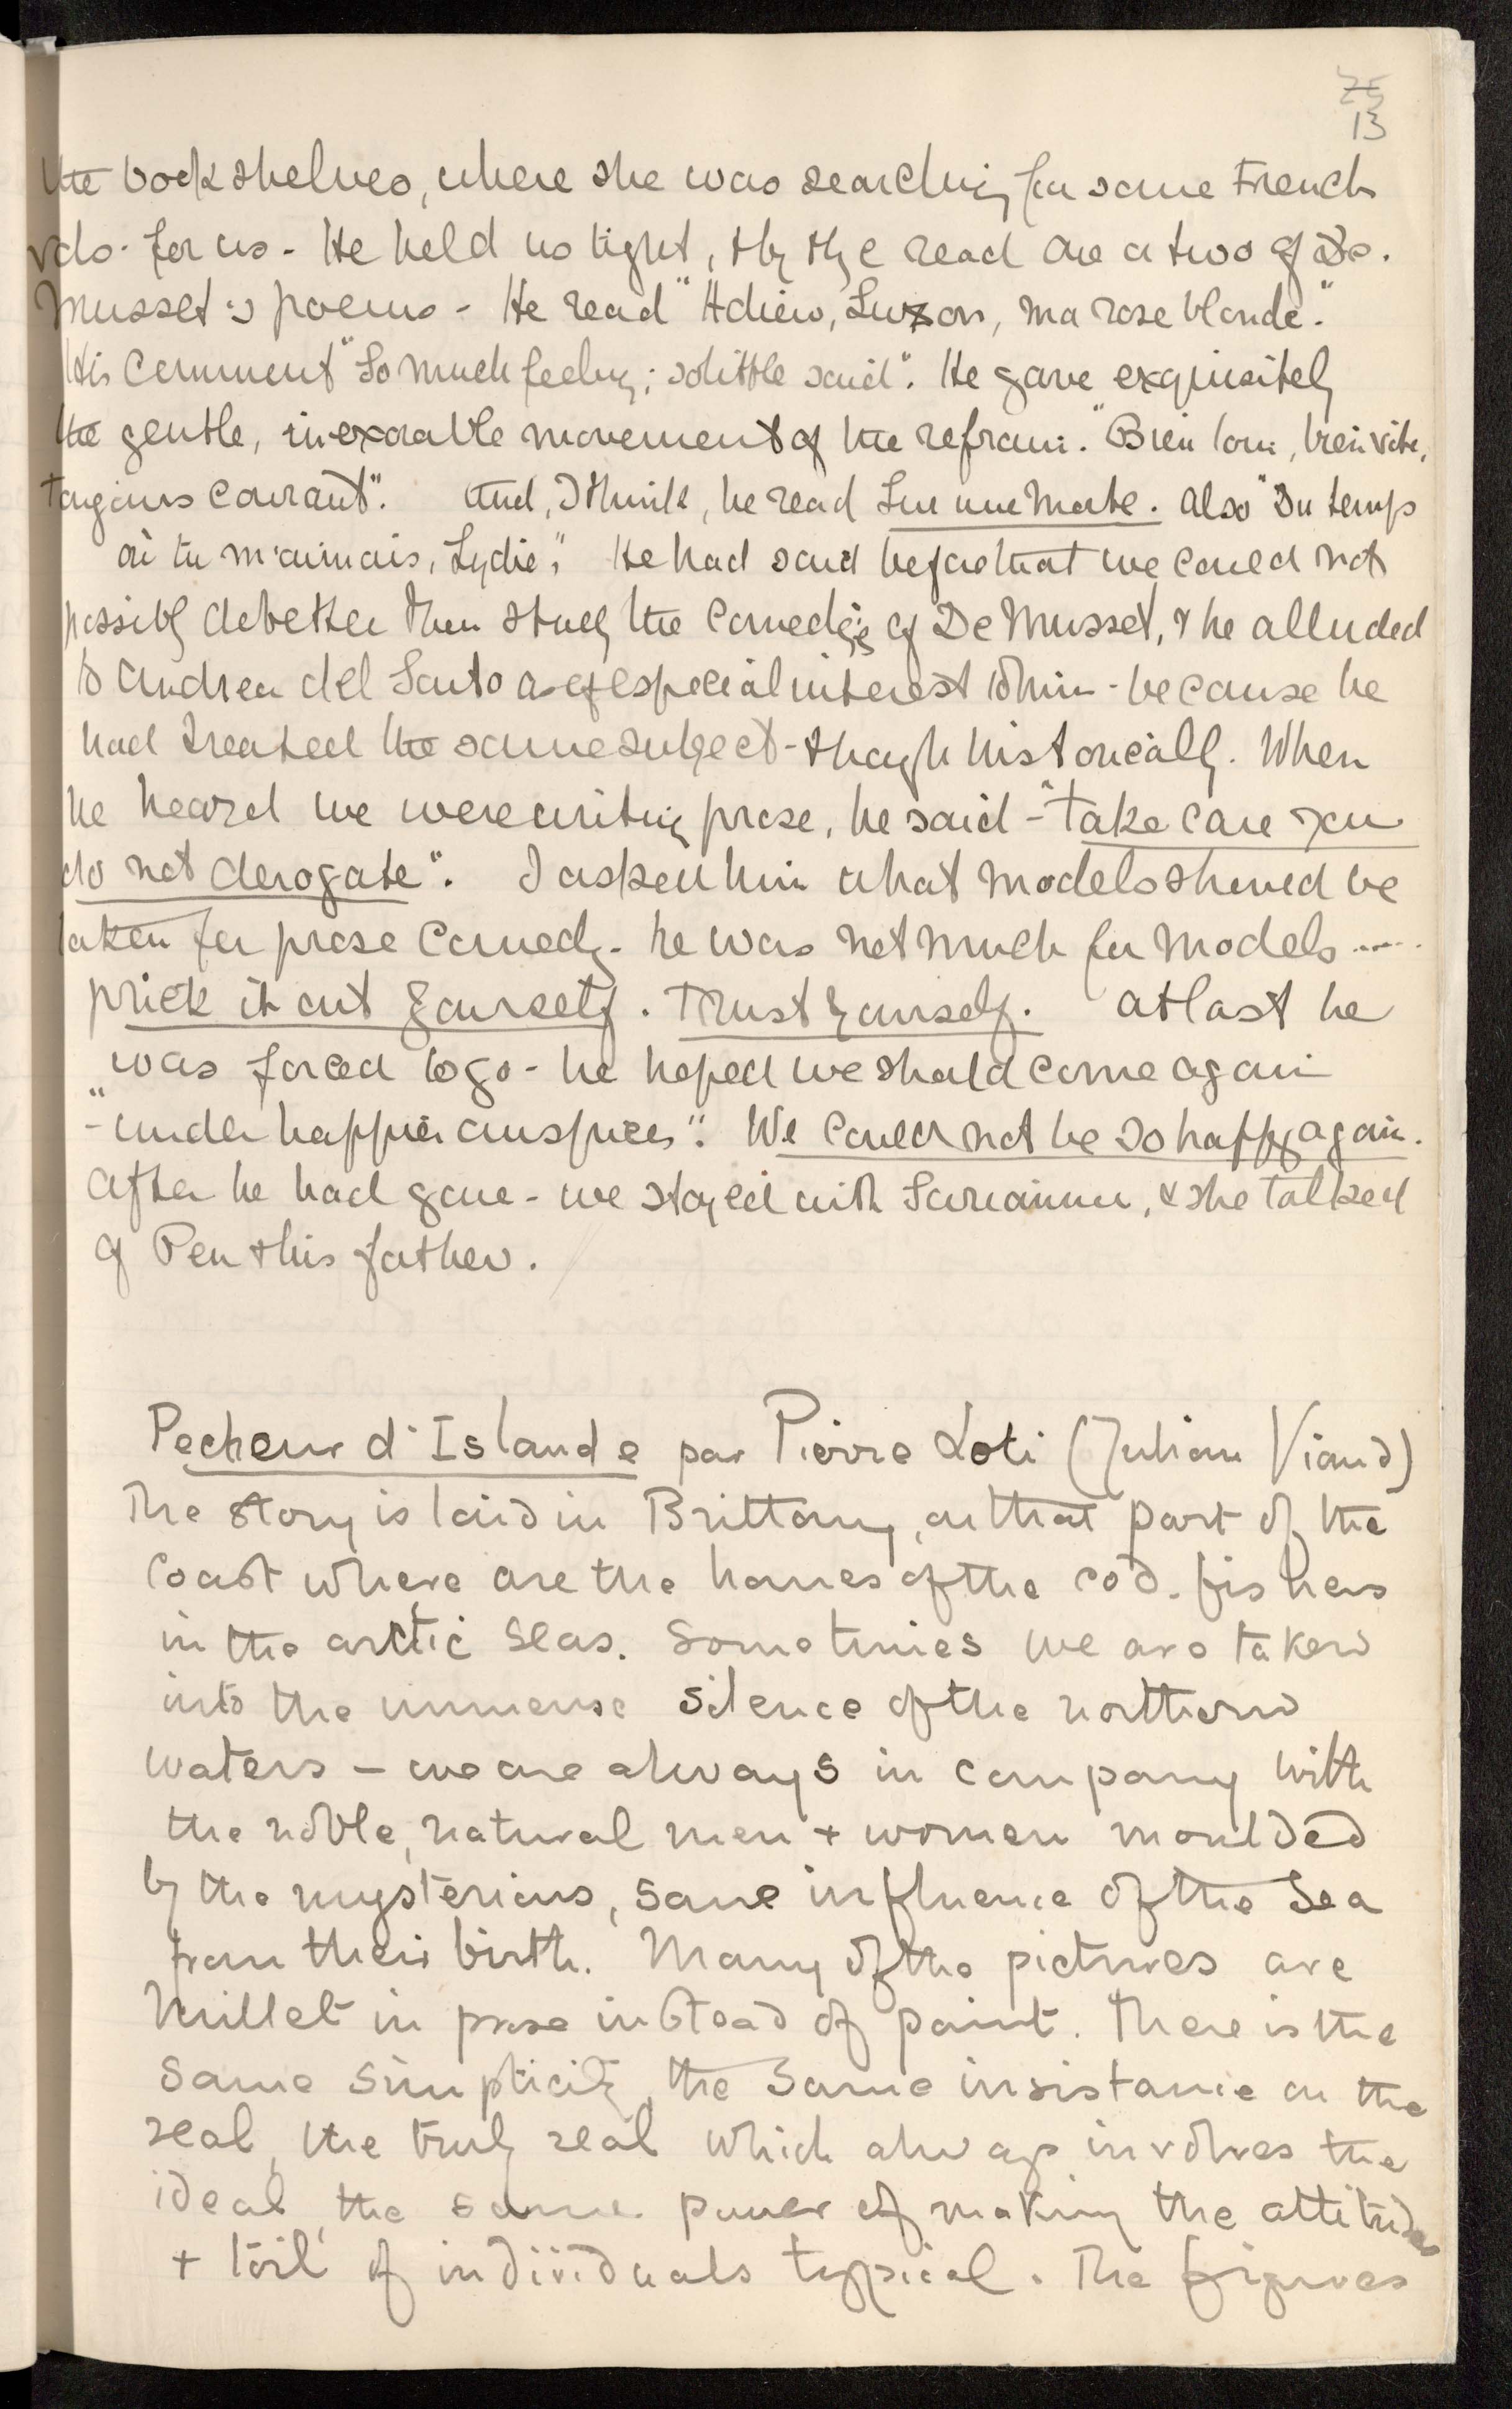 25
13
the bookshelves, where she was searching for some French
vols. for us - He held us tight, & by & bye read one or two of De.
Musset's poems - He read "Adieu, Suzon, ma rose blonde".
His comment "So much feeling; so little said". He gave exquisitely
the gentle, inexorable movement of the refrain. "Bien loin, bien vite,
toujours courant". And, I think, he read Sur une Morte. Also "Du temps
où tu m'aimais, Lydie", He had said before that we could not
possibly do better than study the Comedies of De Musset, & he alluded
to Andrea del Sarto as of especial interest to him - because he
had treated the same subject - though historically. When
he heard we were writing prose, he said - "take care you
do not derogate". I asked him what models should be
taken for prose Comedy - he was not much for models ....
prick it out yourself. Trust yourself. At last he
was forced to go - he hoped we should come again
- "under happier auspices". We could not be so happy again.
After he had gone - we stayed with Sarianna, & she talked
of Pen & his father.
Pecheur d'Islande par Pierre Loti (Julian Viaud)
The story is laid in Brittany, on that part of the
coast where are the homes of the cod-fishers
in the arctic seas. Sometimes we are taken
into the immense silence of the northern
waters – we are always in company with
the noble, natural men + women moulded
by the mysterious, sane influence of the Sea
from their birth. Many of the pictures are
Millet in prose instead of paint. There is the
same simplicity, the same insistance on the
real, the truly real which always involves the
ideal, the same power of making the attitudes
+ toil of individuals typical. The figures